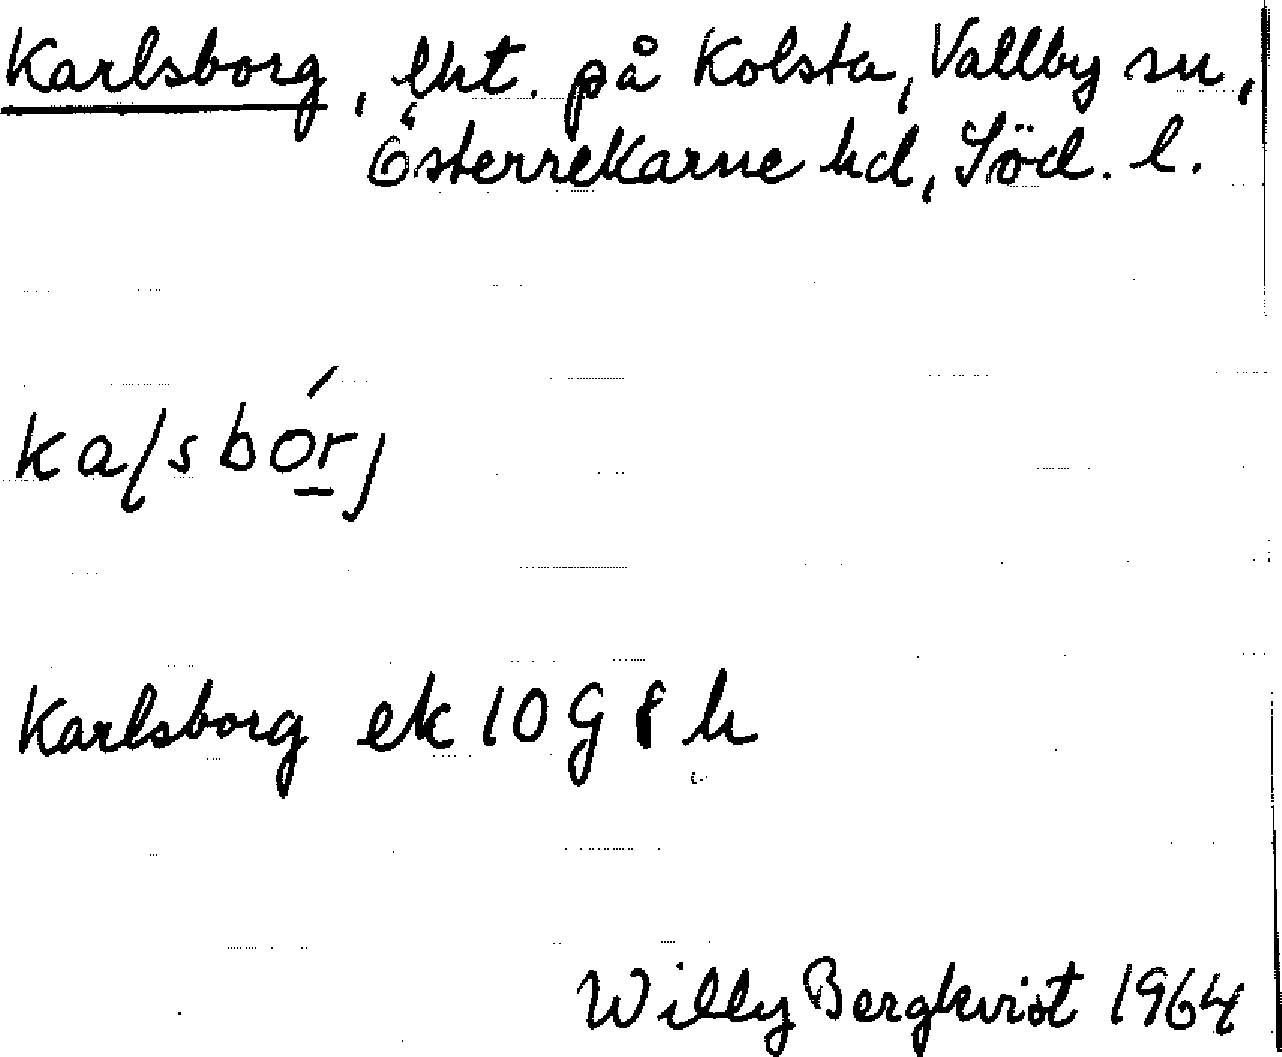 Karlsborg, lht. på Kolsta, Vallby sn,
Österrekarne hd, Söd. l.
kaɭsbórj
Karlsborg ek 10 G 8 h
Willy Bergkvist 1964